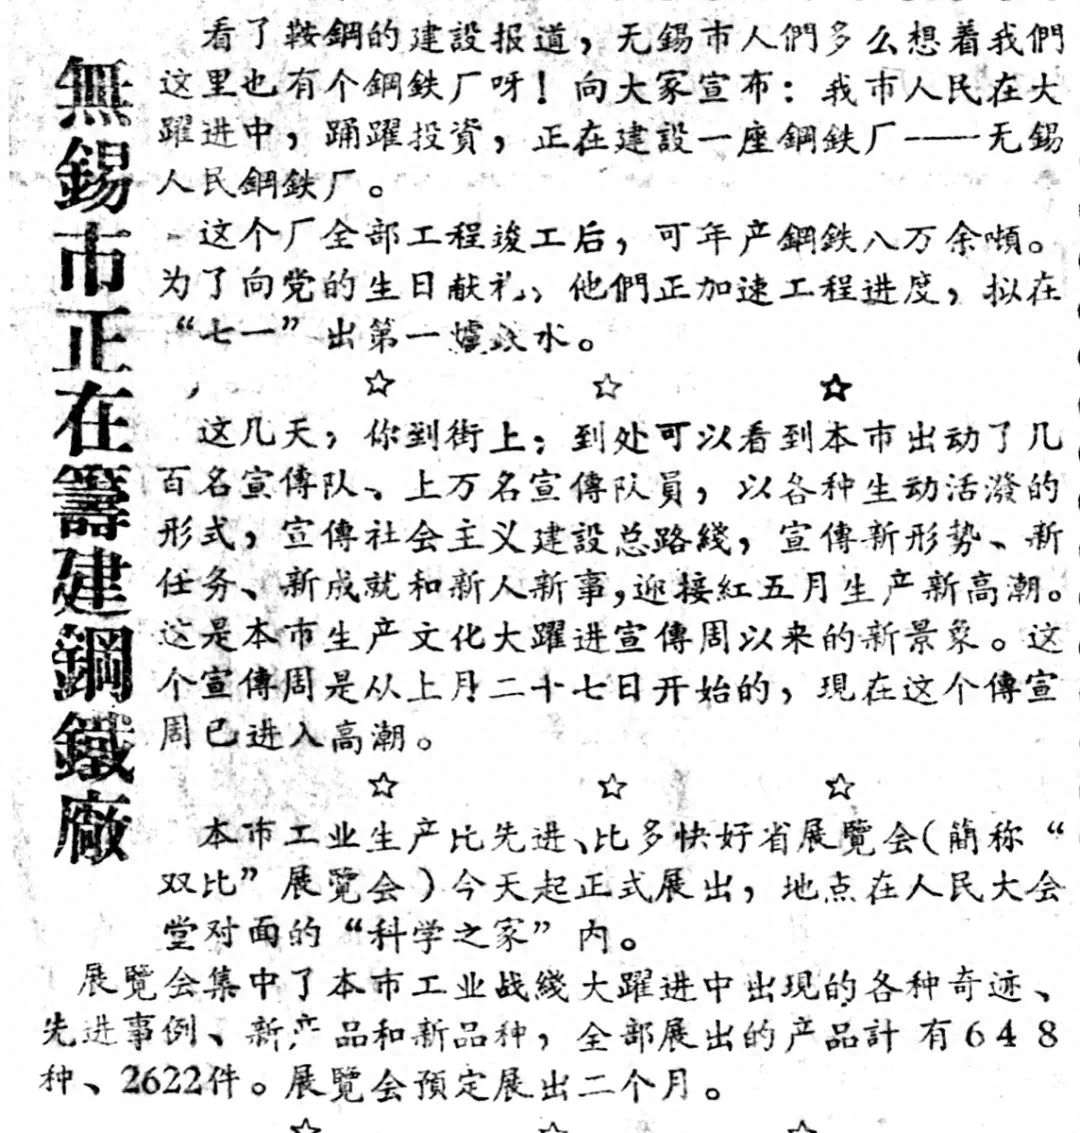 無錫市正在籌建鋼鐵廠
看了鞍鋼的建設报道，无錫市人們多么想着我們
这里也有个鋼鉄厂呀！向大家宣布：我市人民在大
躍进中，踊躍投資，正在建設一座鋼鉄厂——无錫
人民鋼鉄厂。
这个厂全部工程竣工后，可年产鋼鉄八万余噸。
为了向党的生日献礼，他們正加速工程进度，拟在
“七一”出第一爐鉄水。
☆ ☆ ☆
这几天，你到街上；到处可以看到本市出动了几
百名宣傳队、上万名宣傳队員，以各种生动活潑的
形式，宣傳社会主义建設总路綫，宣傳新形勢、新
任务、新成就和新人新事，迎接紅五月生产新高潮。
这是本市生产文化大躍进宣傳周以来的新景象。这
个宣傳周是从上月二十七日开始的，現在这个傳宣
周已进入高潮。
☆ ☆ ☆
本市工业生产比先进、比多快好省展覽会（簡称“
双比”展覽会）今天起正式展出，地点在人民大会
堂对面的“科学之家”内。
展覽会集中了本市工业战綫大躍进中出現的各种奇迹、
先进事例、新产品和新品种，全部展出的产品計有648
种、2622件。展覽会預定展出二个月。
☆ ☆ ☆